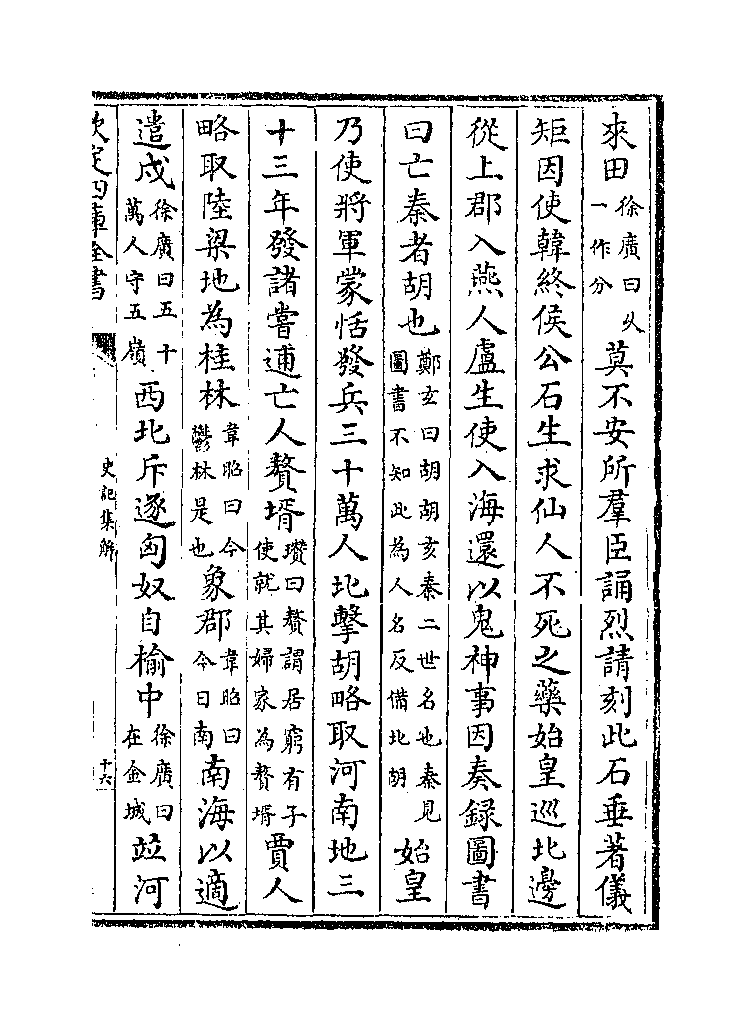 來田徐廣曰久一作分莫不安所羣臣誦烈請刻此石垂著儀
矩因使韓終侯公石生求仙人不死之藥始皇巡北邊
從上郡入燕人盧生使入海還以鬼神事因奏錄圖書
曰亡秦者胡也鄭玄曰胡胡亥秦二世名也秦見圖書不知此為人名反備北胡始皇
乃使將軍蒙恬發兵三十萬人北擊胡略取河南地三
十三年發諸嘗逋亡人贅壻瓚曰贅謂居窮有子使就其婦家為贅壻賈人
略取陸梁地為桂林韋昭曰今鬱林是也象郡韋昭曰今日南南海以適
遣戍徐廣曰五十萬人守五嶺西北斥逐匈奴自榆中徐廣曰在金城竝河
欽定四庫全書
史記集解
十六